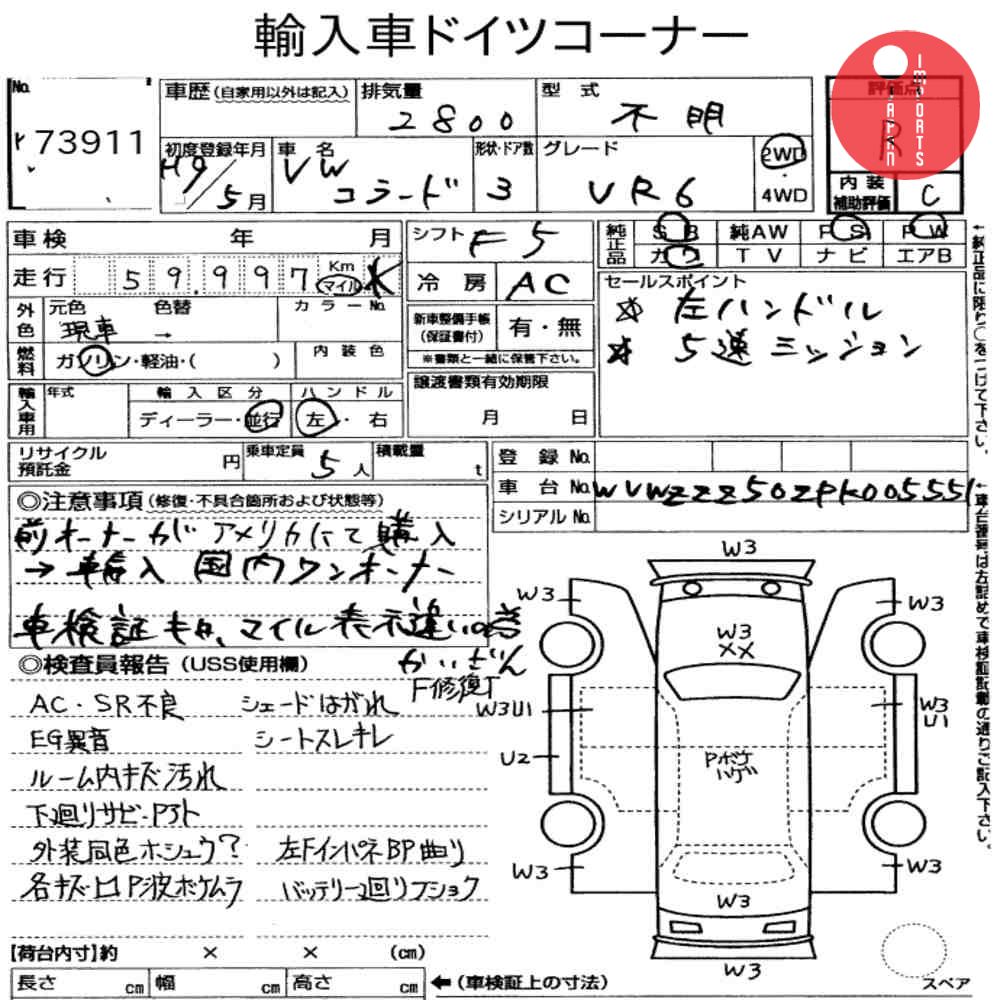 輸入車ドイツコーナー
No.
73911
車歴(自家用以外は記入)
排気量
2800
型式
不明
評価点
R
JAPAN
IMPORTS
初度登録年月
H9/5月
車名
VW コラード
形状・ドア数
3
グレード
VR6
2WD
4WD
内装
補助評価
C
車検 年 月
シフト F5
純正品
SR 純AW PS PW
カワ TV ナビ エアB
走行 59,997 Km マイル K
冷房 AC
セールスポイント
☆ 左ハンドル
☆ 5速ミッション
外色
元色 色替 カラーNo.
現車 →
新車整備手帳
(保証書付)
有・無
※書類と一緒に保管下さい。
燃料
ガソリン・軽油・( )
内装色
譲渡書類有効期限
月 日
輸入車用
年式
輸入区分
ハンドル
ディーラー・並行
左・右
リサイクル
預託金
円
乗車定員
5人
積載量
t
登録No.
車台No. WVWZZZ50ZPK005551
シリアルNo.
◎注意事項(修復・不具合箇所および状態等)
前オーナーがアメリカにて購入
→輸入 国内ワンオーナー
車検証キロ、マイル表示違いの為
かいざん
◎検査員報告(USS使用欄)
F修復T
AC・SR不良 シェードはがれ
EG異音 シートスレキレ
ルーム内キズ汚れ
下廻りサビ・P3ト
外装同色ホシュウ? 左FインパネBP曲り
各キズ凹P波ボケムラ バッテリー2回リフショク
W3
W3
W3
W3
XX
W3U1
W3
U1
U2
Pボケ
ハゲ
W3
W3
W3
W3
【荷台内寸】約 × × (cm)
長さ cm 幅 cm 高さ cm
←(車検証上の寸法)
スペア
←純正品に限り○をつけて下さい。
←車台番号は左詰めで車検証記載の通りご記入下さい。